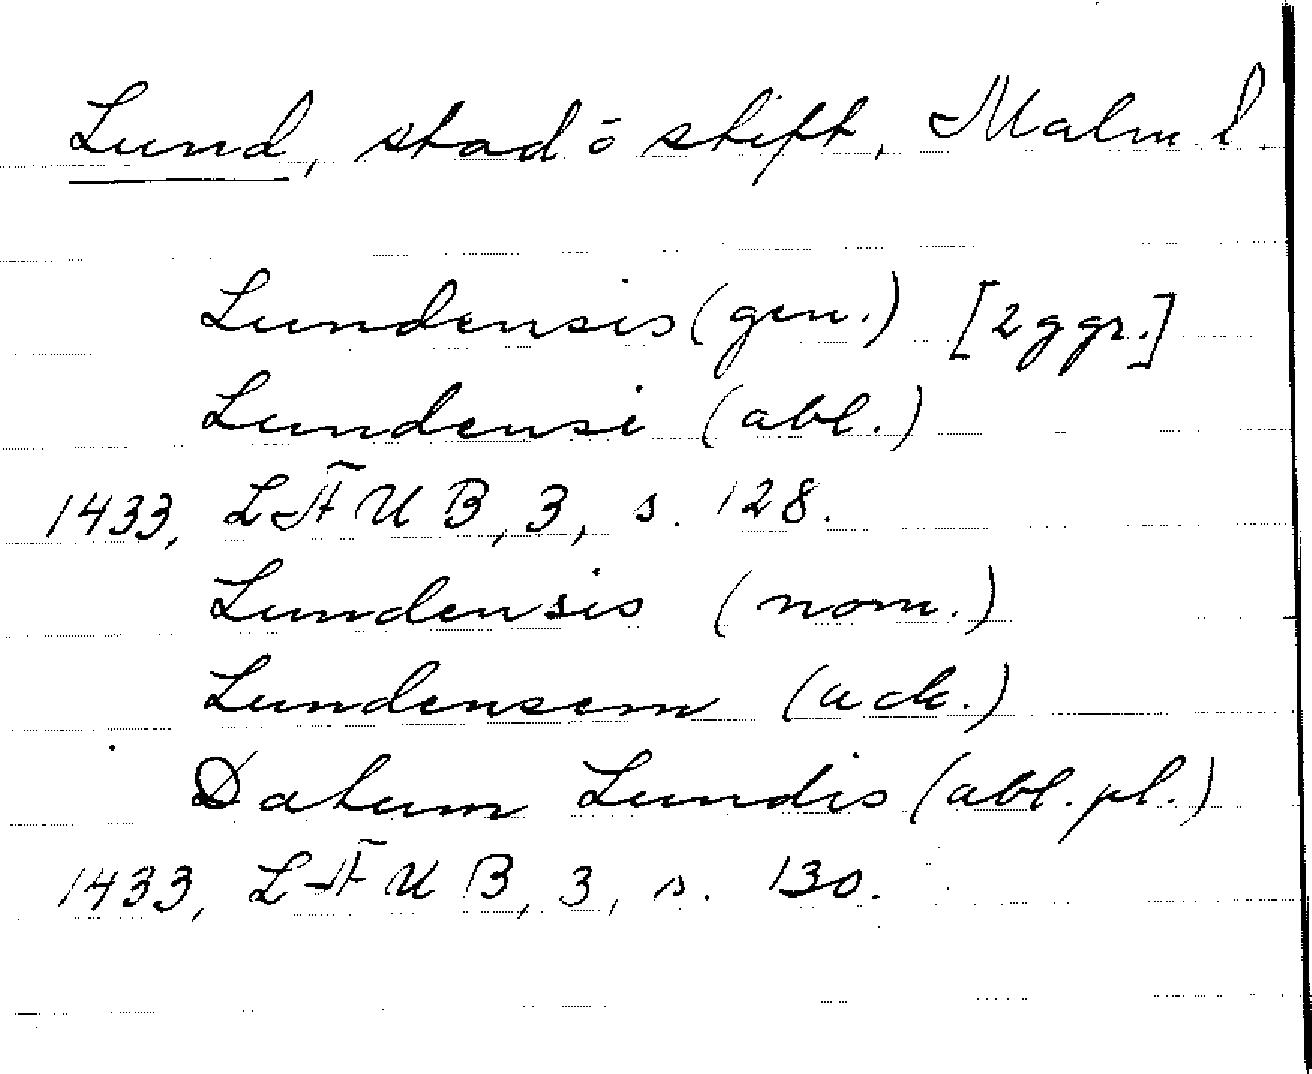 Lund, stad ō stift, Malm l.
Lundensis (gen.) [2 ggr.]
Lundensi (abl.)
1433, LÄUB, 3, s. 128.
Lundensis (nom.)
Lundensem (ack.)
Datum Lundis (abl. pl.)
1433, LÄUB, 3, s. 130.